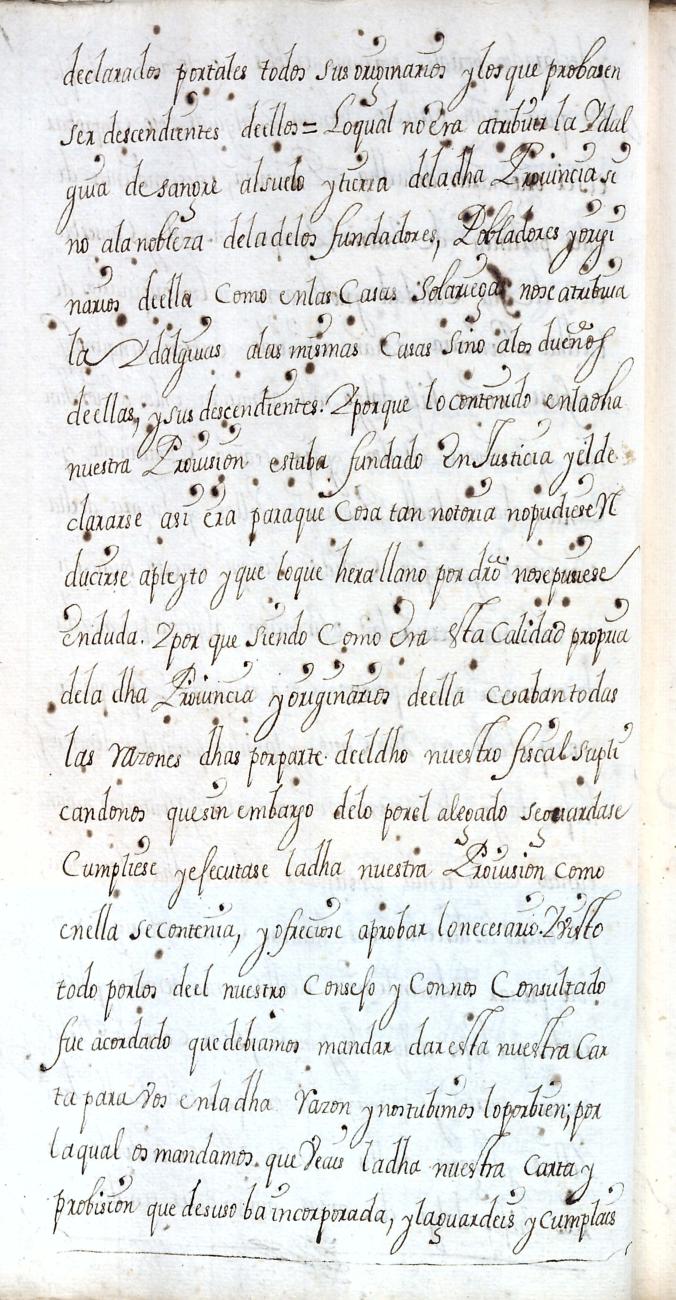 declarados portales todos sus originarios y los que probasen
ser descendientes deellos = Loqual no era atribuir la Ydal
guia de sangre alsuelo y tierra dela dha Provincia si
no ala nobleza dela delos fundadores, Pobladores y origi
narios deella Como enlas Casas Solariegas nose atribuia
la Ydalguias alas mismas Casas sino alos dueños
deellas, y sus descendientes. Y porque lo contenido enla dha
nuestra Provision estaba fundado En Justicia y el de
clararse asi era paraque Cosa tan notoria no pudiese Re
ducirse apleyto y que loque hera llano por dro nose pusiese
Enduda. Y por que siendo Como Era Esta Calidad propria
dela dha Provincia y originarios deella cesaban todas
las razones dhas porparte deeldho nuestro fiscal supli
candonos quesin embargo delo porel alegado seguardase
Cumpliese y esecutase ladha nuestra Provision como
enella se contenia, y ofreciose aprobar lo necesario. Y Visto
todo porlos deel nuestro Consejo y Connos Consultado
fue acordado que debiamos mandar dar esta nuestra Car
ta para Vos enladha Razon y nostubimos loporbien; por
laqual os mandamos que Veais ladha nuestra Carta y
probision que desuso ba incorporada, y laguardeis y cumplais